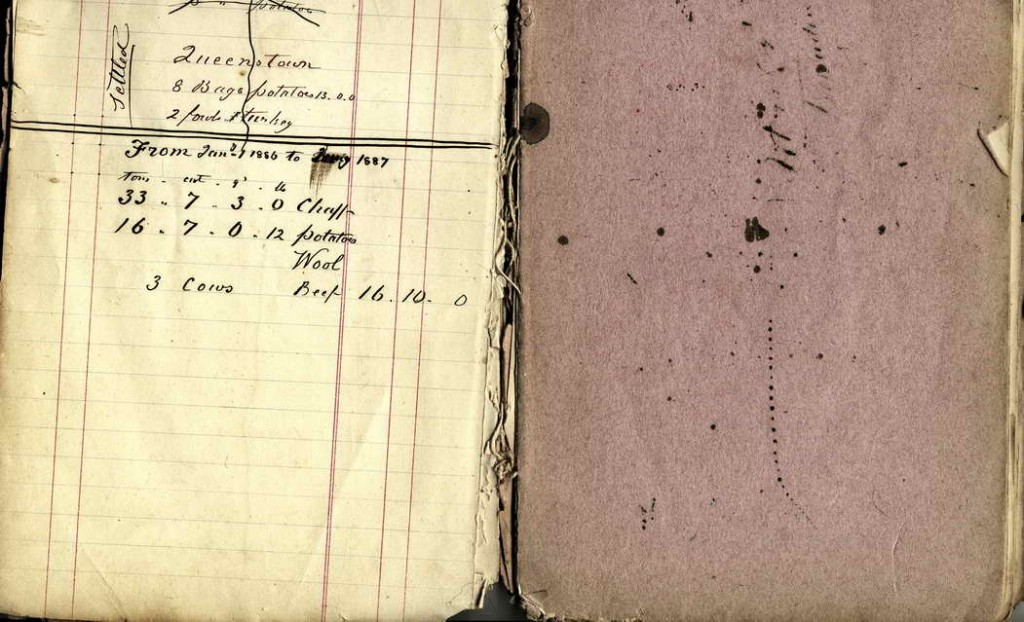 potatoes
Settled
Queenstown
8 Bags potatoes 13.0.0
2 fowls & turkey
From Jan 1 1886 to 1887
tons - cwt - qr - lb
33 .. 7 . 3 . 0 Chaff
16 . 7 . 0 . 12 potatoes
Wool
3 Cows Beef 16. 10. 0